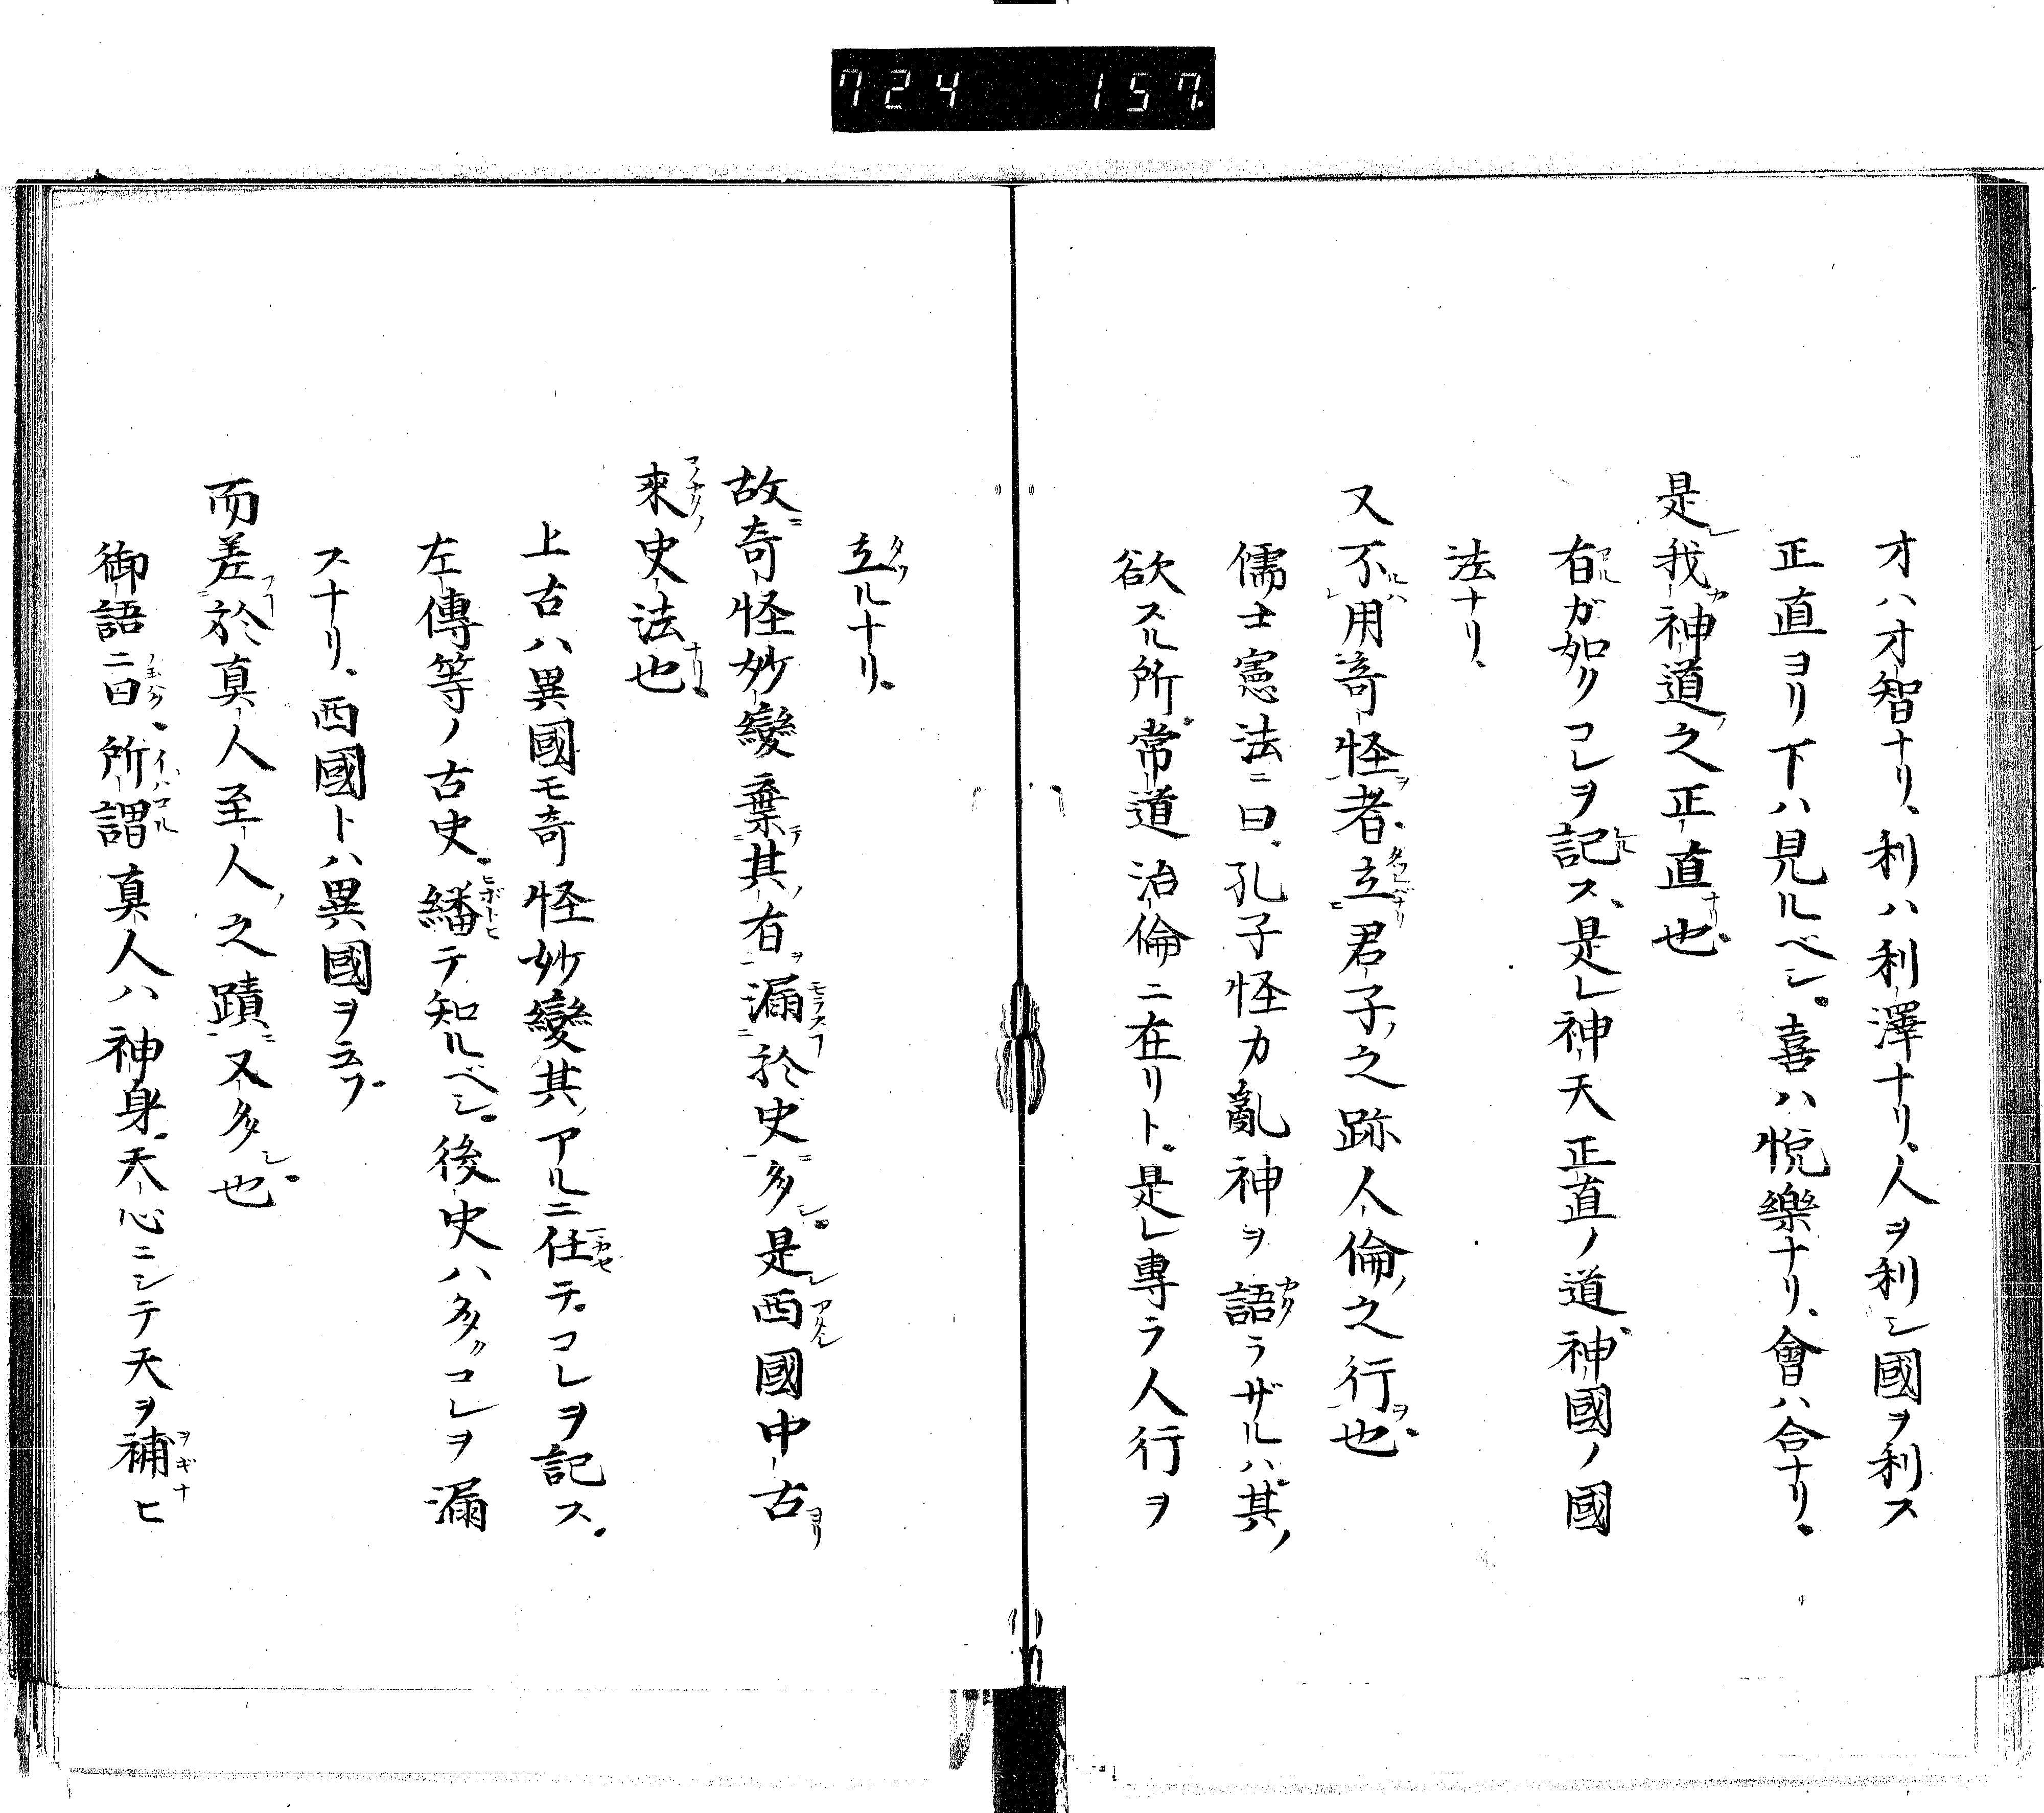 724 157.
才ハ才智ナリ、利ハ利澤ナリ、人ヲ利シ國ヲ利ス
正直ヨリ下ハ見ルベシ。喜ハ悦樂ナリ、會ハ合ナリ。
是レ我カ神道ノ之正直也
有ルガ如クコレヲ記ス、是レ神天正直ノ道、神國ノ國
法ナリ、
又不用奇怪者。立君子ノ之跡人倫ノ之行也
儒士憲法ニ曰、孔子怪力亂神ヲ語ラザルハ其ノ
欲スル所常道治倫ニ在リト。是レ專ラ人行ヲ
立ルナリ。
故ニ奇怪妙變棄其ノ有漏於史多シ。是レ西國中古
來史法也
上古ハ異國モ奇怪妙變其ノアルニ任テ。コレヲ記ス。
左傳等ノ古史。繙テ知ルベシ。後史ハ多クコレヲ漏
スナリ、西國トハ異國ヲ云フ。
而差於真人至人ノ之蹟又多シ也
御語ニ曰。所謂真人ハ神身。天心ニシテ天ヲ補ヒ